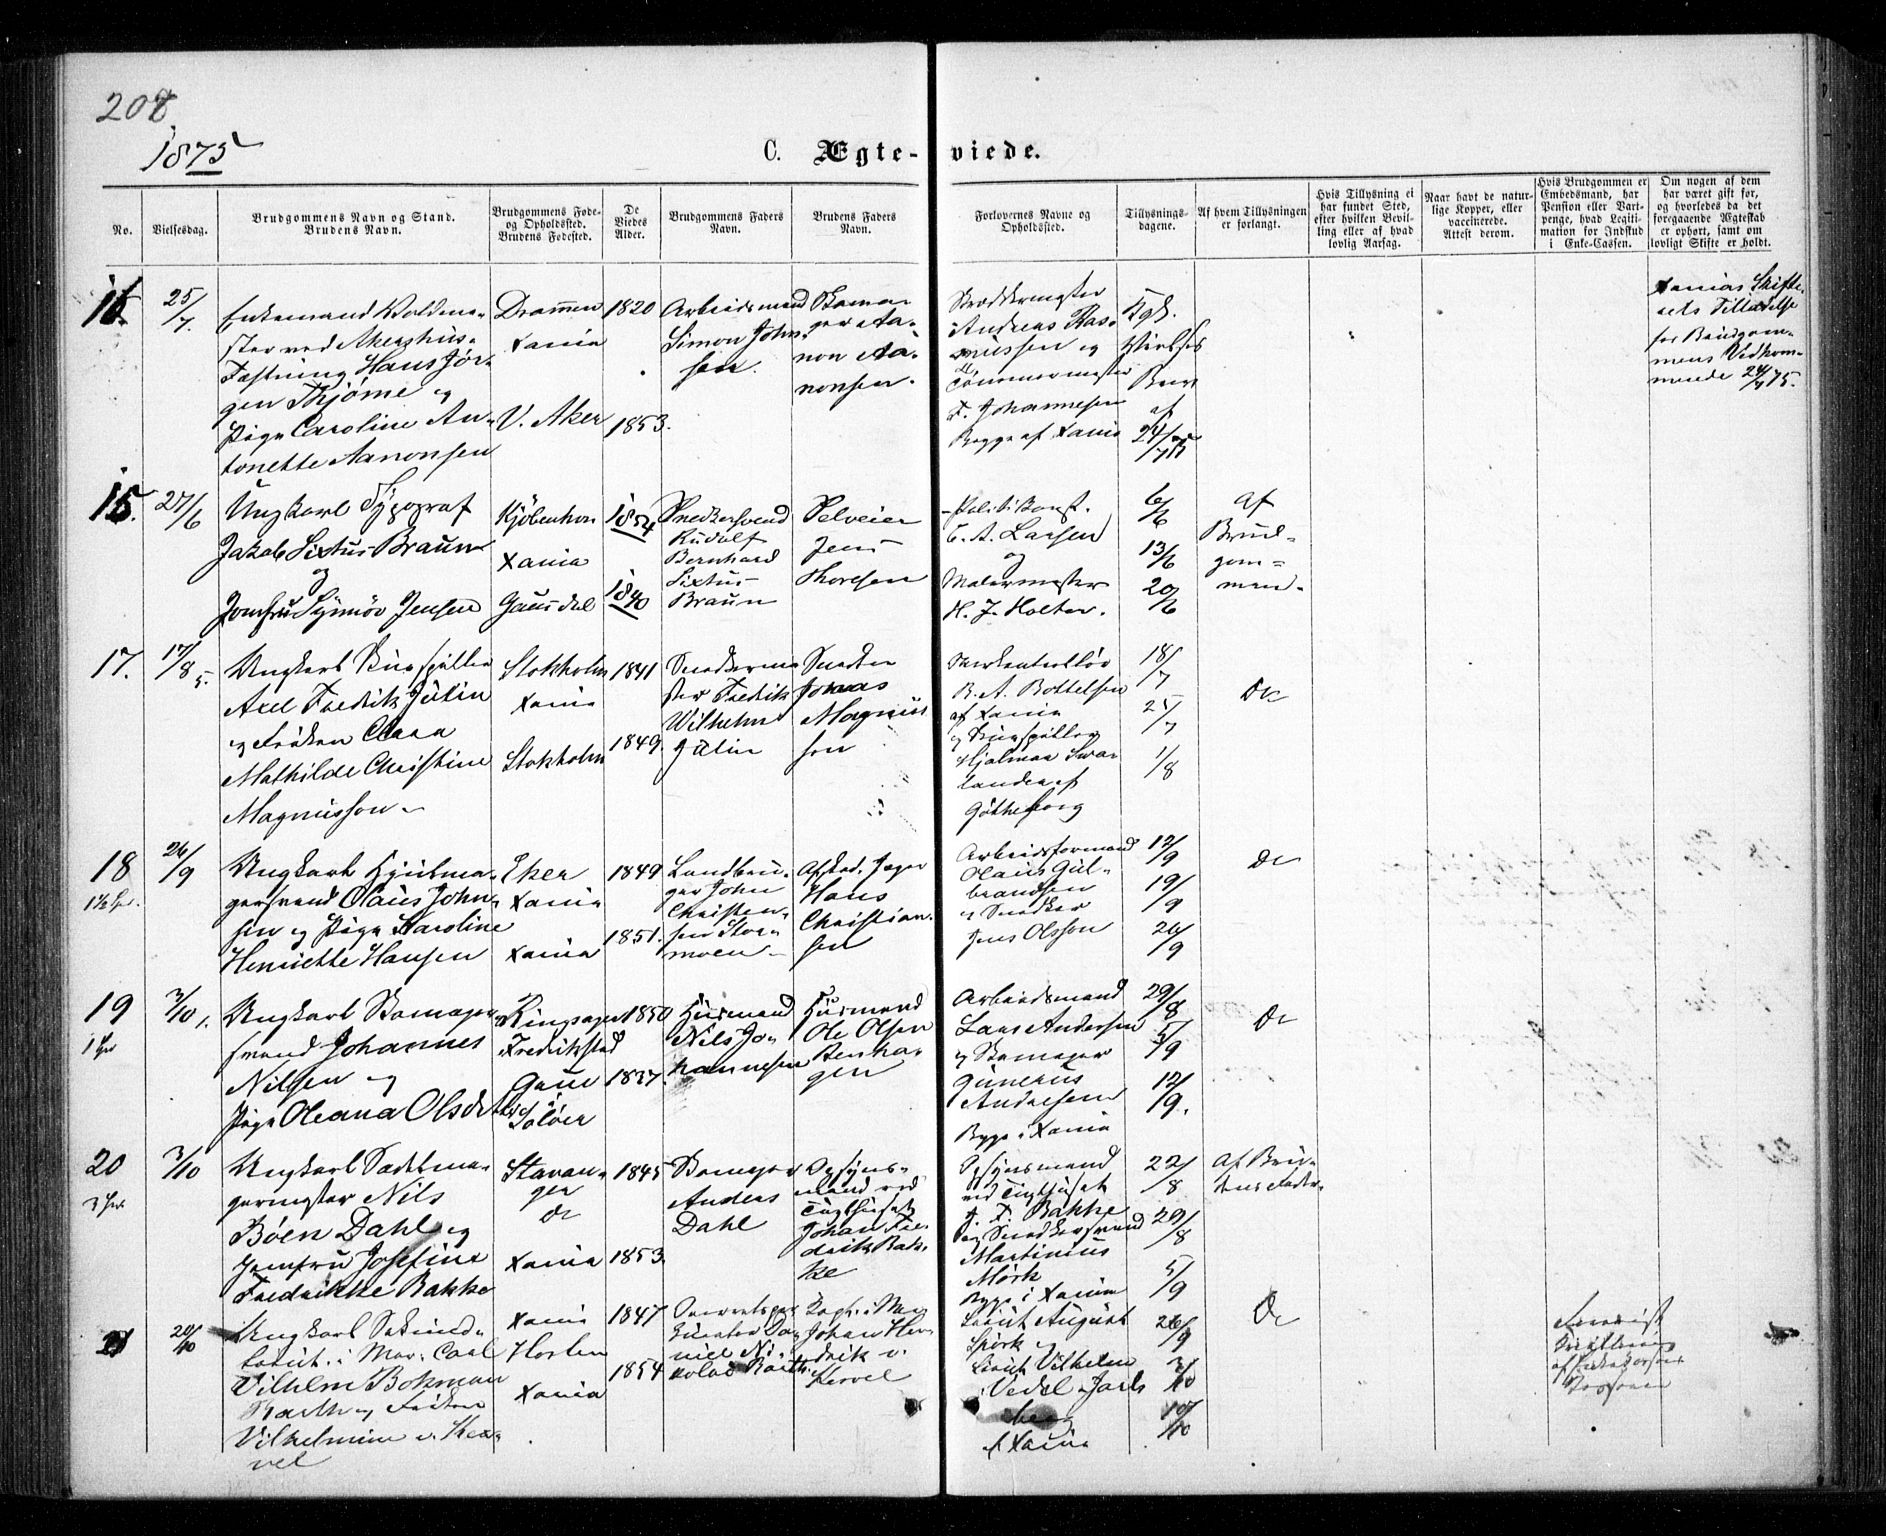 208
1875
C. Ægte-viede.
No.
Vielsesdag.
Brudgommens Navn og Stand.
Brudens Navn.
Brudgommens Føde-
og Opholdssted.
Brudens Fødested.
De
Viedes
Alder.
Brudgommens Faders
Navn.
Brudens Faders
Navn.
Forlovernes Navne og
Opholdssted.
Tillysnings-
dagene.
Af hvem Tillysningen
er forlangt.
Hvis Tillysning ei
har fundet Sted,
efter hvilken Bevil-
ling eller af hvad
lovlig Aarsag.
Naar havt de natur-
lige Kopper, eller
vaccinerede.
Attest derom.
Hvis Brudgommen er
Embedsmand, har
Pension eller Vart-
penge, hvad Legiti-
mation for Indskud
i Enke-Cassen.
Om nogen af dem
har været gift før,
og hvorledes da det
foregaaende Ægteskab
er ophørt, samt om
lovligt Skifte er holdt.
25/7.
Enkemand Voldme-
ster ved Akershus
Fæstning Hans Jør-
gen Thjøme og
Pige Caroline An-
tonette Aanonsen
Drammen
Xania
V. Aker
1820
1853.
Arbeidsmand
Simon John-
sen.
Skoma-
ger Aa-
non Aa-
nonsen.
Skræddermester
Andreas Ras-
mussen og
Tømmermester
F. Johannesen
Begge af Xania
Kgl.
Vielses
Brev
af
24/7 75
Xanias Skifte-
rets Tilladelse
for Brudgom-
mens Vedkom-
mende 24/7 75.
15.
27/6
Ungkarl Typograf
Jakob Sixtus Braun
og
Jomfru Synnøv Jensen
Kjøbenhavn
Xania
Gausdal
1854
1840
Snedkersvend
Rudolf
Bernhard
Sixtus
Braun
Selveier
Jens
Thoresen
Politikonst.
C. A. Larsen
og
Malermester
H. J. Holter.
6/6
13/6
20/6
Af
Brud-
gom-
men.
17.
17/8 5.
Ungkarl
Axel Fredrik Julin
og Frøken Clara
Mathilde Christine
Magnusson
Stokholm
Xania
Stokholm
1841
1849.
Snedkerme
ster Fredrik
Wilhelm
Julin
Snedker
Jonas
Magnus
son
B. A. Bottelsen
af Xania
og Skuespiller
Hjalmar Swa-
lander af
Götheborg
18/7
25/7
1/8
Do
18
26/9
Ungkarl Hjulma-
gersvend Olaus John-
sen og Pige Karoline
Henriette Hansen
Eker
Xania
Xania
1849
1851.
Landbru-
ger John
Christen-
sen Stor-
moen
Afskd. Jæger
Hans
Christian-
sen
Arbeidsformand
Olaus Gul-
brandsen
og Snedker
Jens Olsson
12/9
19/9
26/9
Do
19
3/10
Ungkarl Skomager-
svend Johannes
Nilsen og
Pige Oleana Olsdatter
Ringsager
Fredrikstad
Grue
i Solør
1850
1837.
Husmand
Nils Jo-
hannesen
Husmand
Ole Olsen
Benha-
gen
Arbeidsmand
Lars Andersen
og Skomager
Gunerius
Andresen
Begge i Xania
29/8
5/9
12/9.
Do
20
3/10
Ungkarl Sadelma-
germester Nils
Böen Dahl og
Jomfru Josefine
Fredrikke Bakke
Stavan-
ger
Do
Xania
1845
1853.
Skomager
Anders
Dahl
Opsyns-
mand ved
Tugthuset
Johan Fre-
drik Bak-
ke
Opsynsmand
ved Tugthuset
J. F. Bakke
og Snedkersvend
Martinius
Mörk
Begge i Xania
22/8
29/8
5/9
Af Bru-
dens Fader.
21
20/10
Ungkarl Sekond-
løitn. i Mar. Carl
Vilhelm Bokman
Barth og Frøken
Vilhelmine v. Ker-
vel
Xania
Horten
Xania
1847
1854
Daniel Ni-
kolai Barth
Johan Hen-
drik v.
Kervel
Løitnt August
Spörk og
Løitnt Vilhelm
Vedel Jarls
berg
af Xania
26/9
3/10
10/10
Do